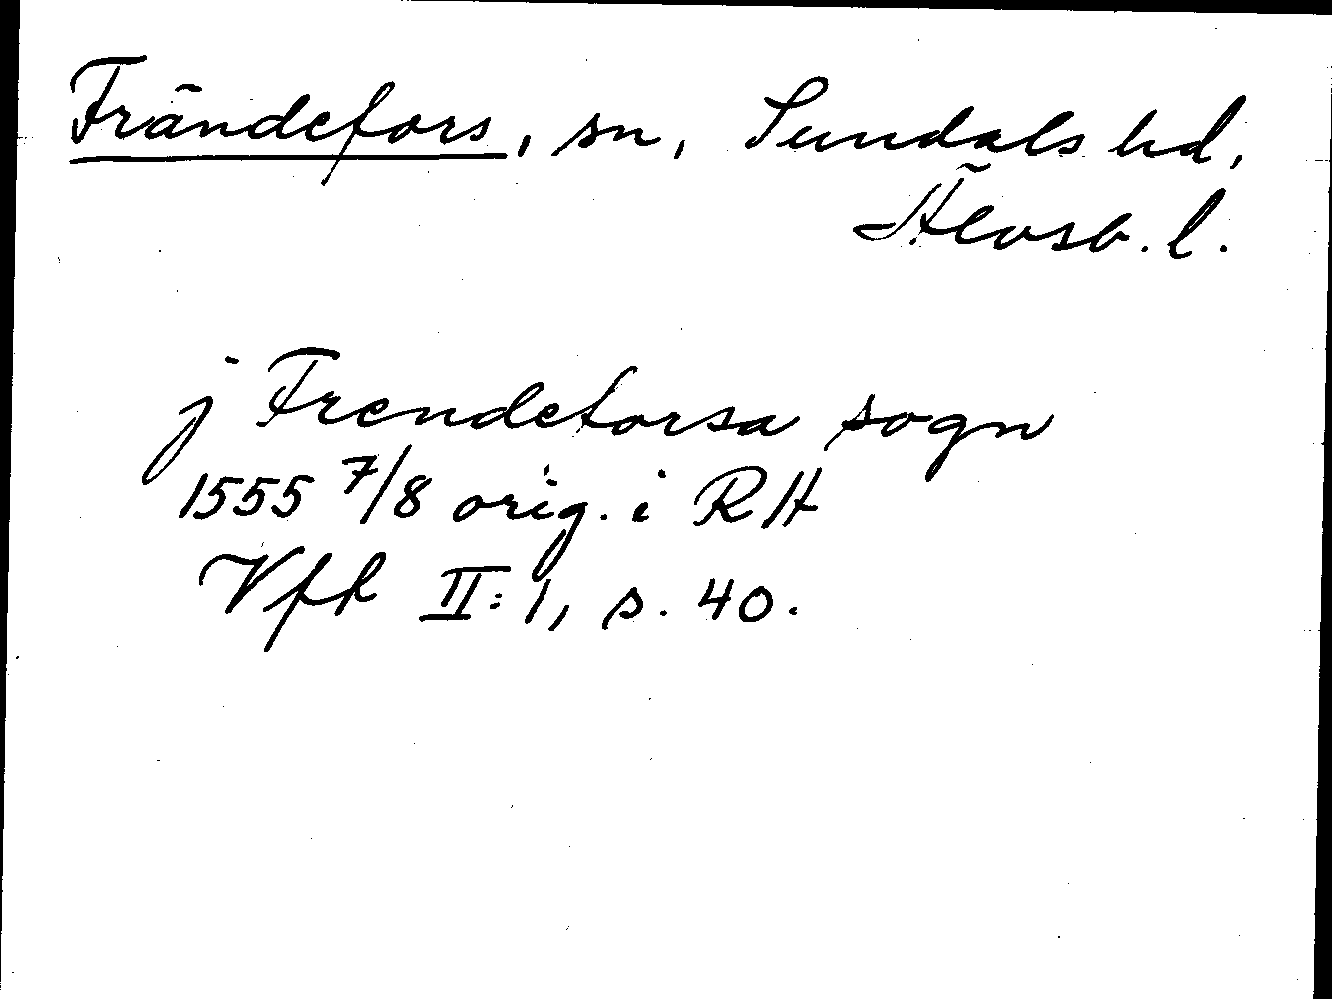 Frändefors, sn, Sundals hd,
Älvsb. l.
j Frendeforsa sogn
1555 7/8 orig. i RH
Vfr II:1, s. 40.